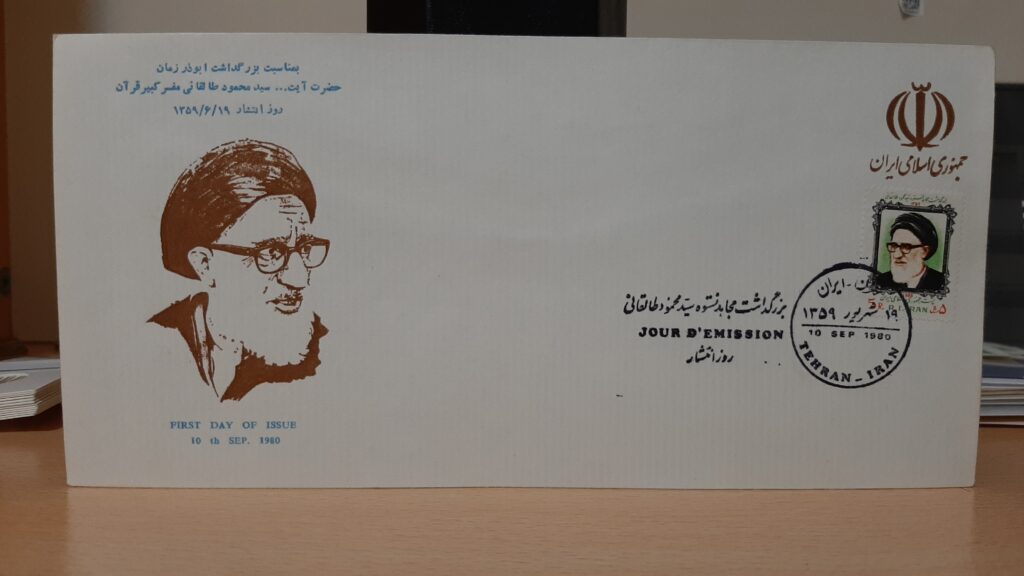 بمناسبت بزرگداشت ابوذر زمان
حضرت آیت... سید محمود طالقانی مفسر کبیر قرآن
روز انتشار ۱۳۵۹/۶/۱۹
FIRST DAY OF ISSUE
10 th SEP. 1980
جمهوری اسلامی ایران
بزرگداشت مجاهد نستوه سید محمود طالقانی
JOUR D'EMISSION
روز انتشار
ایران
۱۹ شهریور ۱۳۵۹
10 SEP 1980
TEHRAN - IRAN